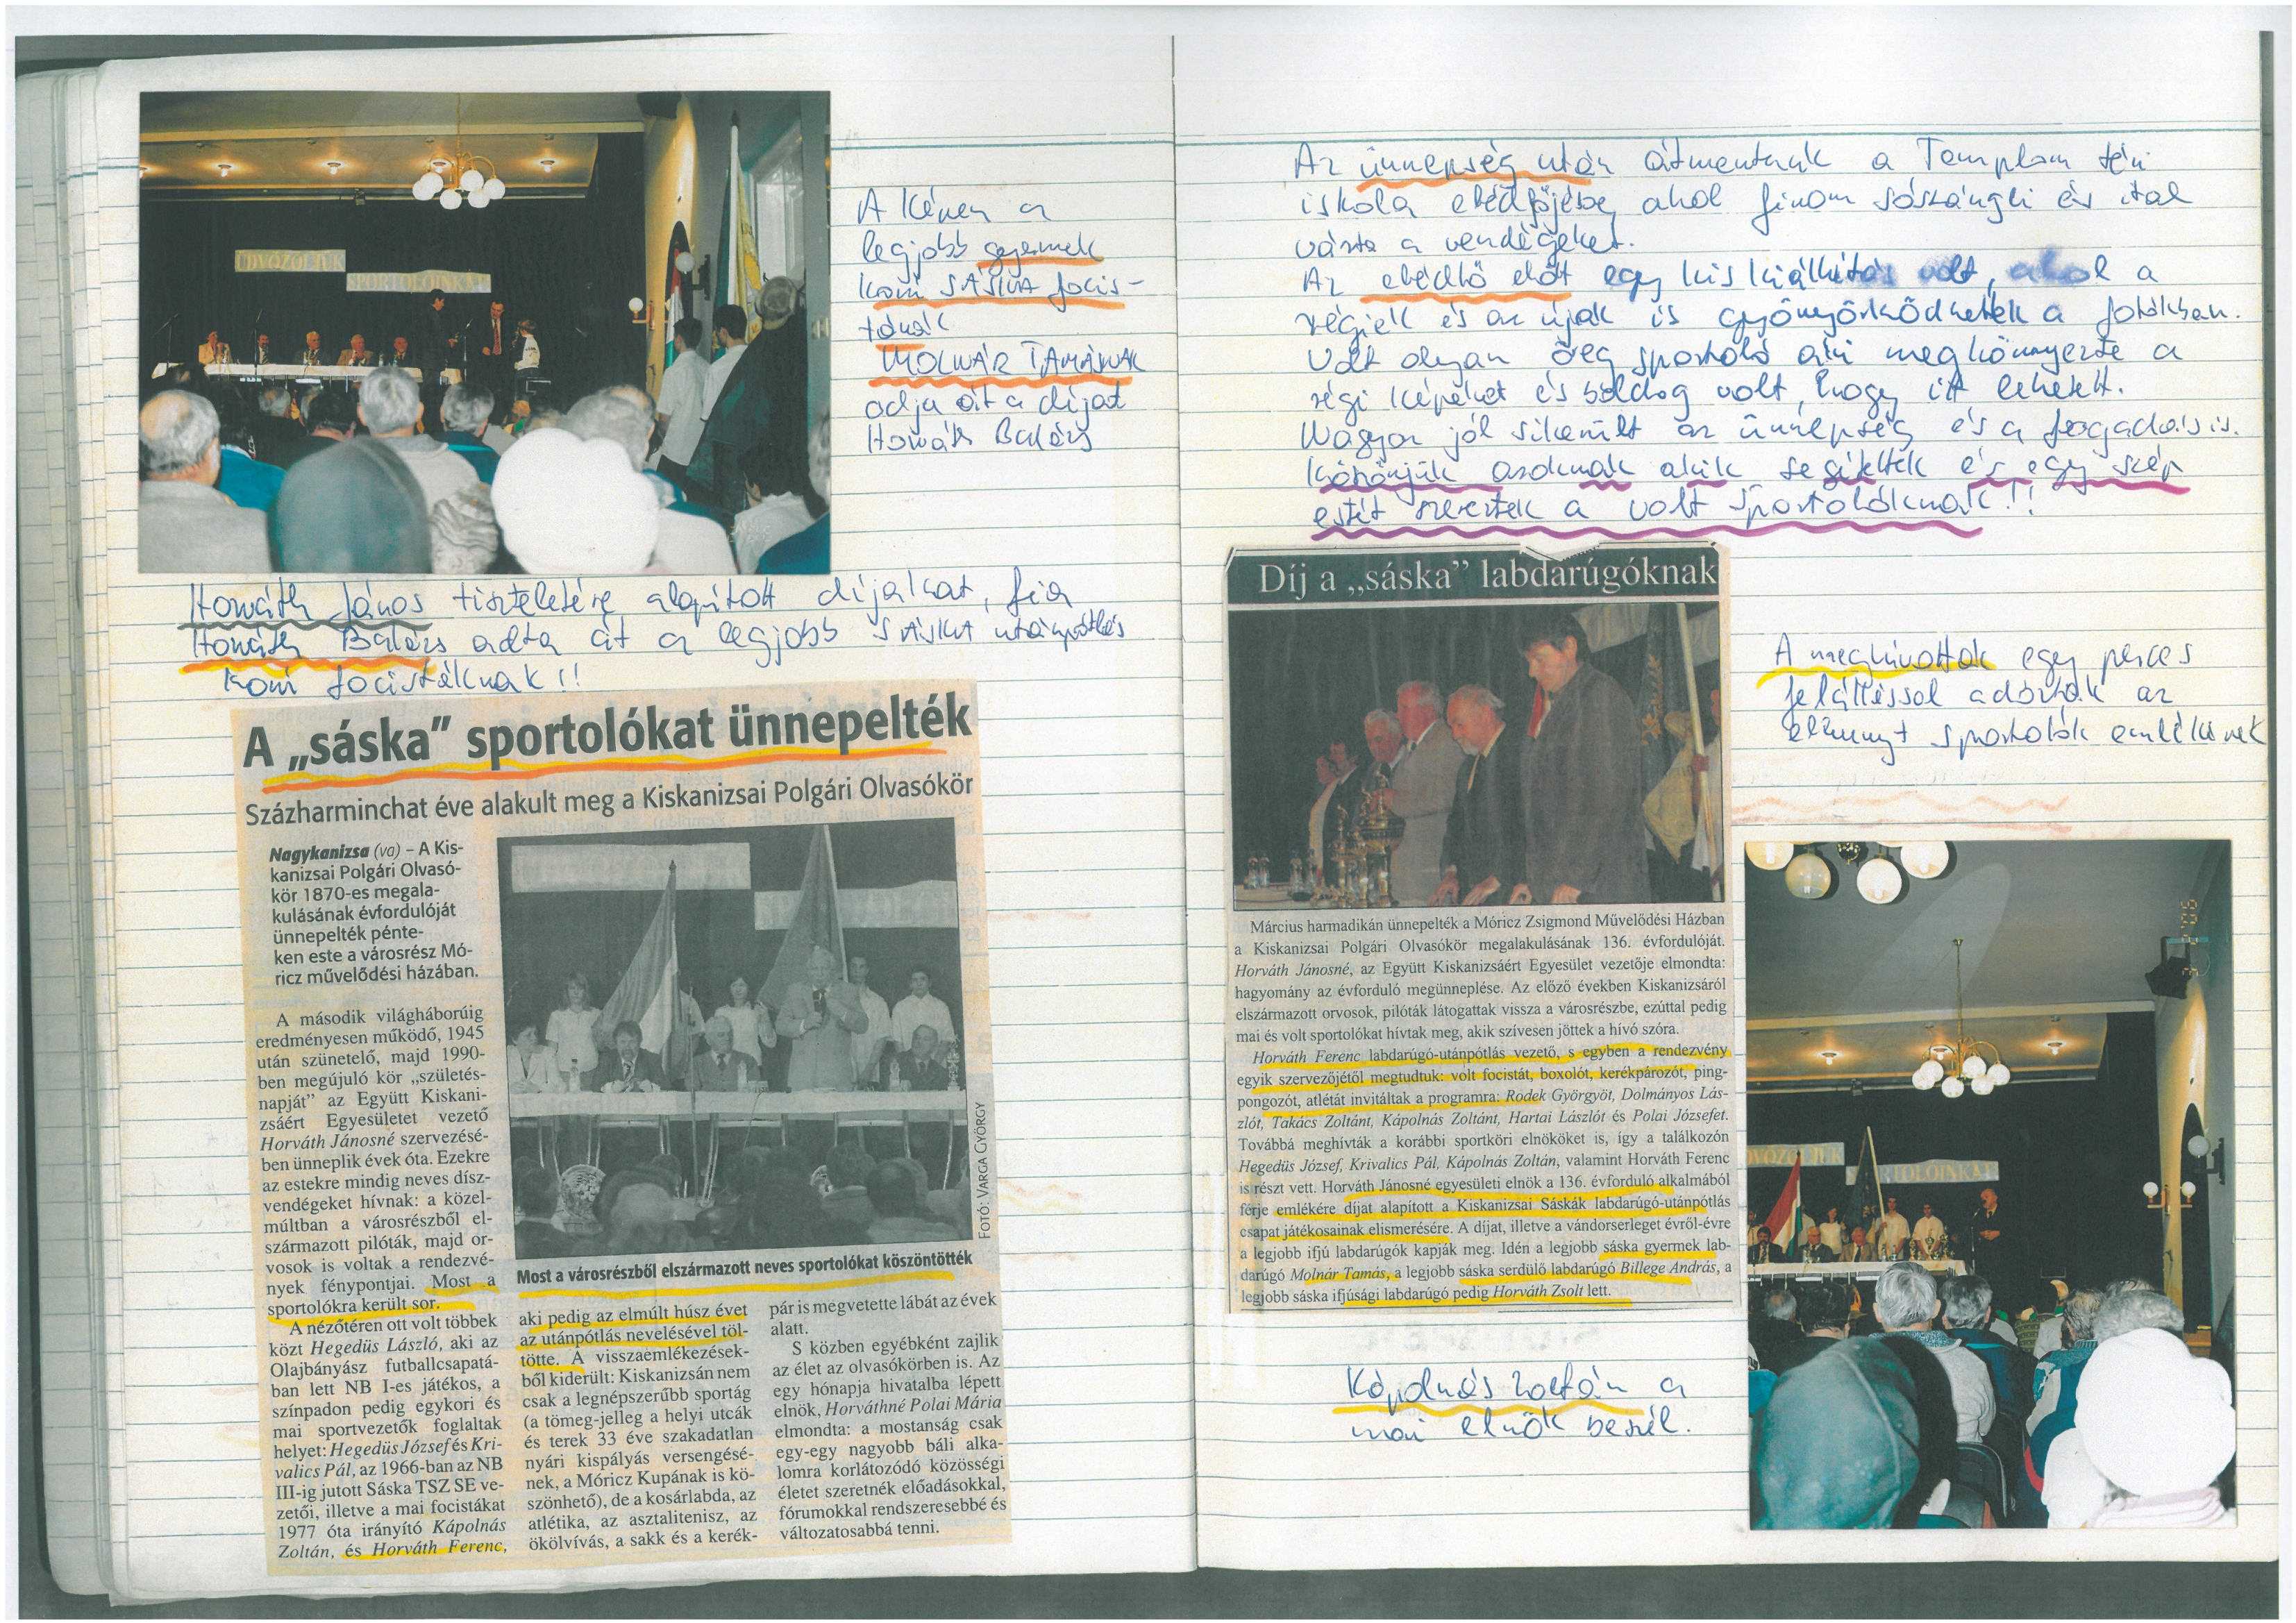 ÜDVÖZÖLJÜK
SPORTOLÓINKAT
A képen a
legjobb gyermek
korú SÁSKA focis-
tának
MOLNÁR TAMÁSNAK
adja át a díjat
Horváth Balázs
Horváth János tiszteletére alapított díjakat, fia
Horváth Balázs adta át a legjobb SÁSKA utánpótlás
korú focistáknak!!
A „sáska” sportolókat ünnepelték
Százharminchat éve alakult meg a Kiskanizsai Polgári Olvasókör
Nagykanizsa (va) – A Kis-
kanizsai Polgári Olvasó-
kör 1870-es megala-
kulásának évfordulóját
ünnepelték pénte-
ken este a városrész Mó-
ricz művelődési házában.
A második világháborúig
eredményesen működő, 1945
után szünetelő, majd 1990-
ben megújuló kör „születés-
napját” az Együtt Kiskani-
zsáért Egyesületet vezető
Horváth Jánosné szervezésé-
ben ünneplik évek óta. Ezekre
az estekre mindig neves dísz-
vendégeket hívnak: a közel-
múltban a városrészből el-
származott pilóták, majd or-
vosok is voltak a rendezvé-
nyek fénypontjai. Most a
sportolókra került sor.
A nézőtéren ott volt többek
közt Hegedüs László, aki az
Olajbányász futballcsapatá-
ban lett NB I-es játékos, a
színpadon pedig egykori és
mai sportvezetők foglaltak
helyet: Hegedüs József és Kri-
valics Pál, az 1966-ban az NB
III-ig jutott Sáska TSZ SE ve-
zetői, illetve a mai focistákat
1977 óta irányító Kápolnás
Zoltán, és Horváth Ferenc,
FOTÓ: VARGA GYÖRGY
Most a városrészből elszármazott neves sportolókat köszöntötték
aki pedig az elmúlt húsz évet
az utánpótlás nevelésével töl-
tötte. A visszaemlékezések-
ből kiderült: Kiskanizsán nem
csak a legnépszerűbb sportág
(a tömeg-jelleg a helyi utcák
és terek 33 éve szakadatlan
nyári kispályás versengésé-
nek, a Móricz Kupának is kö-
szönhető), de a kosárlabda, az
atlétika, az asztalitenisz, az
ökölvívás, a sakk és a kerék-
pár is megvetette lábát az évek
alatt.
S közben egyébként zajlik
az élet az olvasókörben is. Az
egy hónapja hivatalba lépett
elnök, Horváthné Polai Mária
elmondta: a mostanság csak
egy-egy nagyobb báli alka-
lomra korlátozódó közösségi
életet szeretnék előadásokkal,
fórumokkal rendszeresebbé és
változatosabbá tenni.
Az ünnepség után átmentünk a Templom téri
iskola ebédlőjébe, ahol finom sószángli és ital
várta a vendégeket.
Az ebédlő előtt egy kis kiállítás volt, ahol a
régiek és az újak is gyönyörködhettek a fotókban.
Volt olyan öreg sportoló aki megkönnyezte a
régi képeket és boldog volt, hogy itt lehetett.
Nagyon jól sikerült az ünnepség és a fogadás is.
Köszönjük azoknak akik segítettek és egy szép
estét szereztek a volt sportolóknak!!
Díj a „sáska” labdarúgóknak
Március harmadikán ünnepelték a Móricz Zsigmond Művelődési Házban
a Kiskanizsai Polgári Olvasókör megalakulásának 136. évfordulóját.
Horváth Jánosné, az Együtt Kiskanizsáért Egyesület vezetője elmondta:
hagyomány az évforduló megünneplése. Az előző években Kiskanizsáról
elszármazott orvosok, pilóták látogattak vissza a városrészbe, ezúttal pedig
mai és volt sportolókat hívtak meg, akik szívesen jöttek a hívó szóra.
Horváth Ferenc labdarúgó-utánpótlás vezető, s egyben a rendezvény
egyik szervezőjétől megtudtuk: volt focistát, boxolót, kerékpározót, ping-
pongozót, atlétát invitáltak a programra: Rodek Györgyöt, Dolmányos Lás-
zlót, Takács Zoltánt, Kápolnás Zoltánt, Hartai Lászlót és Polai Józsefet.
Továbbá meghívták a korábbi sportköri elnököket is, így a találkozón
Hegedüs József, Krivalics Pál, Kápolnás Zoltán, valamint Horváth Ferenc
is részt vett. Horváth Jánosné egyesületi elnök a 136. évforduló alkalmából
férje emlékére díjat alapított a Kiskanizsai Sáskák labdarúgó-utánpótlás
csapat játékosainak elismerésére. A díjat, illetve a vándorserleget évről-évre
a legjobb ifjú labdarúgók kapják meg. Idén a legjobb sáska gyermek lab-
darúgó Molnár Tamás, a legjobb sáska serdülő labdarúgó Billege András, a
legjobb sáska ifjúsági labdarúgó pedig Horváth Zsolt lett.
A meghívottak egy perces
felállással adóztak az
elhunyt sportolók emlékének
ÜDVÖZÖLJÜK
SPORTOLÓINKAT
Kápolnás Zoltán a
mai elnök beszél.